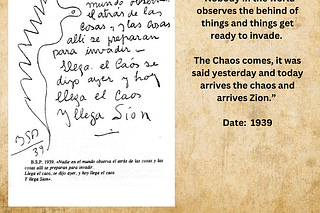 mundo observa
el atrás de las
cosas y las cosas
allí se preparan
para invadir
llega el Caos se
dijo ayer y hoy
llega el Caos
Y llega Sion
BSP
39
B.S.P. 1939. «Nadie en el mundo observa el atrás de las cosas y las
cosas allí se preparan para invadir.
Llega el caos, se dijo ayer, y hoy llega el caos
Y llega Sion».
observes the behind of
things and things get
ready to invade.
The Chaos comes, it was
said yesterday and today
arrives the chaos and
arrives Zion.”
Date: 1939